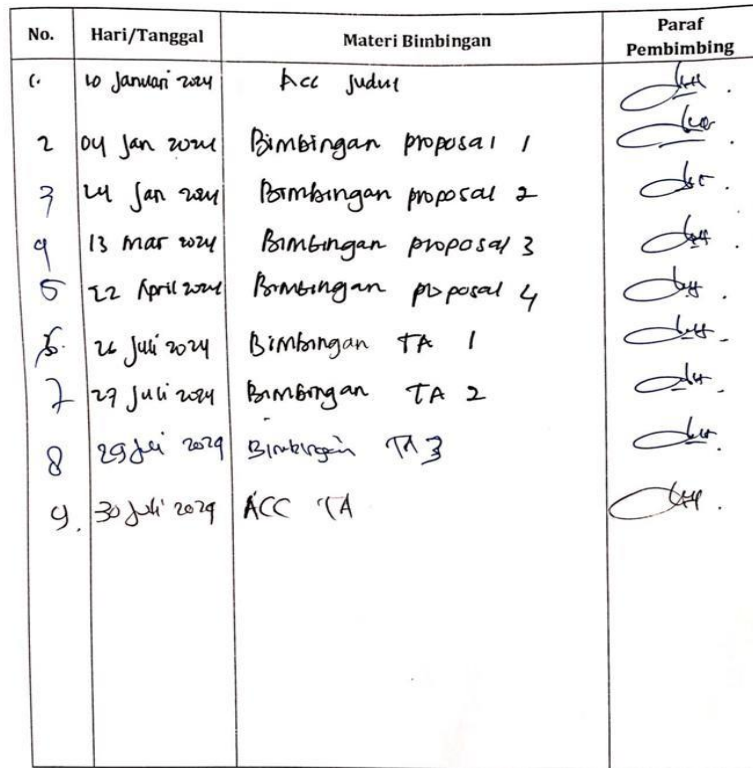 No. Hari/Tanggal Materi Bimbingan Paraf Pembimbing
1. 10 Januari 2024 Acc Judul
2 04 Jan 2024 Bimbingan proposal 1
3 24 Jan 2024 Bimbingan proposal 2
4 13 Mar 2024 Bimbingan proposal 3
5 22 April 2024 Bimbingan proposal 4
6. 26 Juli 2024 Bimbingan TA 1
7 27 Juli 2024 Bimbingan TA 2
8 29 Juli 2024 Bimbingan TA 3
9. 30 Juli 2024 ACC TA